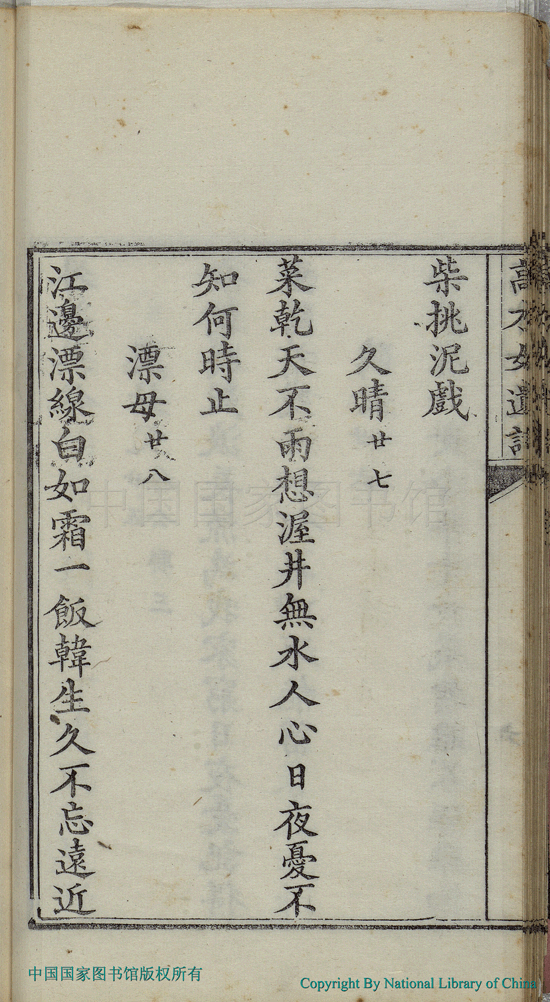 高才女遺詩
柴挑泥戲
久晴廿七
菜乾天不雨想渥井無水人心日夜憂不
知何時止
漂母廿八
江邊漂線白如霜一飯韓生久不忘遠近
中国国家图书馆
中国国家图书馆版权所有
Copyright By National Library of China